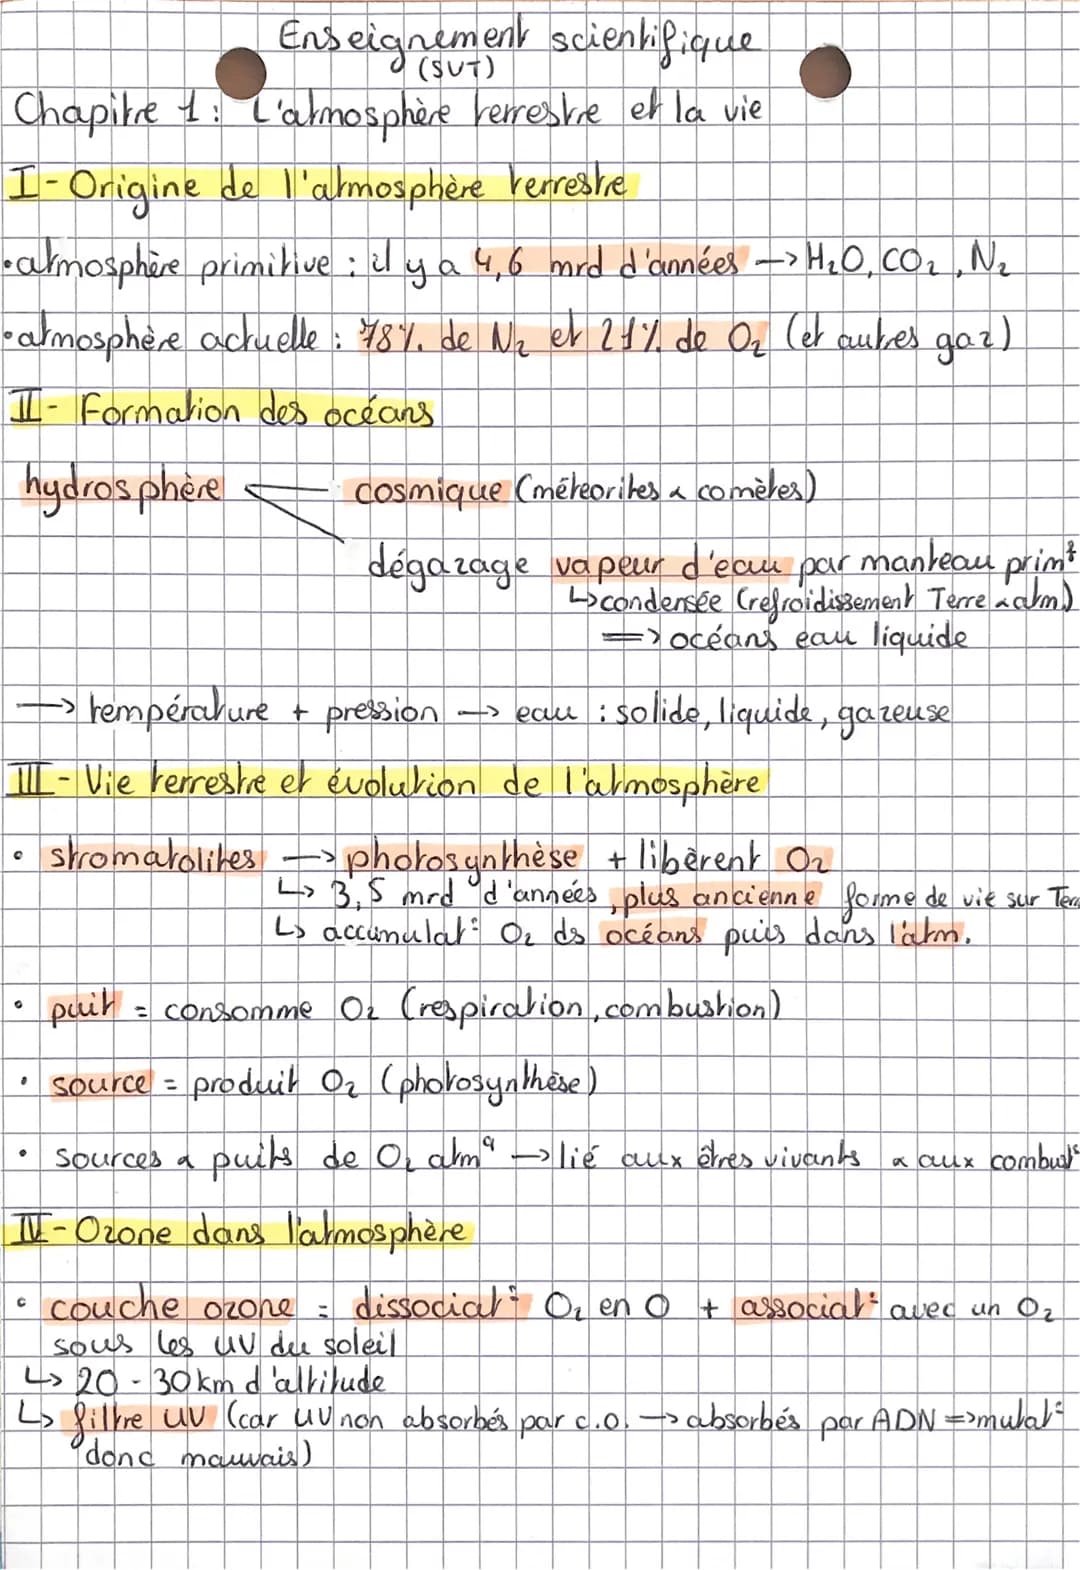 Enseignement scientifique
(SVT)
Chapitre 1 : L'atmosphère terrestre et la vie
I - Origine de l'atmosphère terrestre
• atmosphère primitive : il y a 4,6 mrd d'années → H₂O, CO₂, N₂
• atmosphère actuelle : 78% de N₂ et 21% de O₂ (et autres gaz)
II - Formation des océans
hydrosphère cosmique (météorites & comètes)
dégazage vapeur d'eau par manteau prim^t
↳ condensée (refroidissement Terre & atm)
=> océans eau liquide
→ température + pression → eau : solide, liquide, gazeuse
III - Vie terrestre et évolution de l'atmosphère
• stromatolites → photosynthèse + libèrent O₂
↳ 3,5 mrd d'années, plus ancienne forme de vie sur Terre
↳ accumulat° O₂ ds océans puis dans l'atm.
• puit = consomme O₂ (respiration, combustion)
• source = produit O₂ (photosynthèse)
• sources & puits de O₂ atm^q → lié aux êtres vivants & aux combust°
IV - Ozone dans l'atmosphère
• couche ozone = dissociat° O₂ en O + associat° avec un O₂
sous les UV du soleil
↳ 20 - 30 km d'altitude
↳ filtre UV (car UV non absorbés par c.o. → absorbés par ADN => mutat°
donc mauvais)